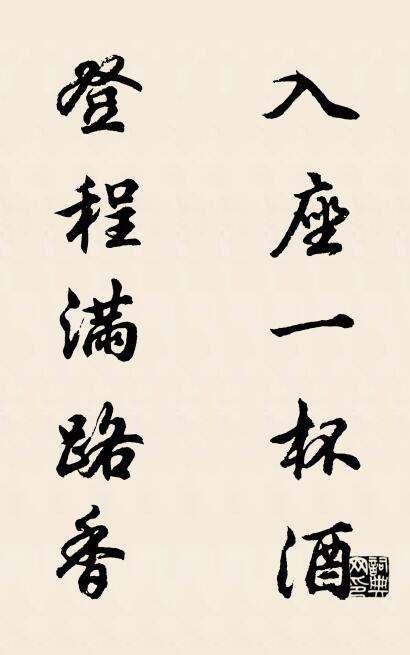 入座一杯酒
登程满路香
詞典網印